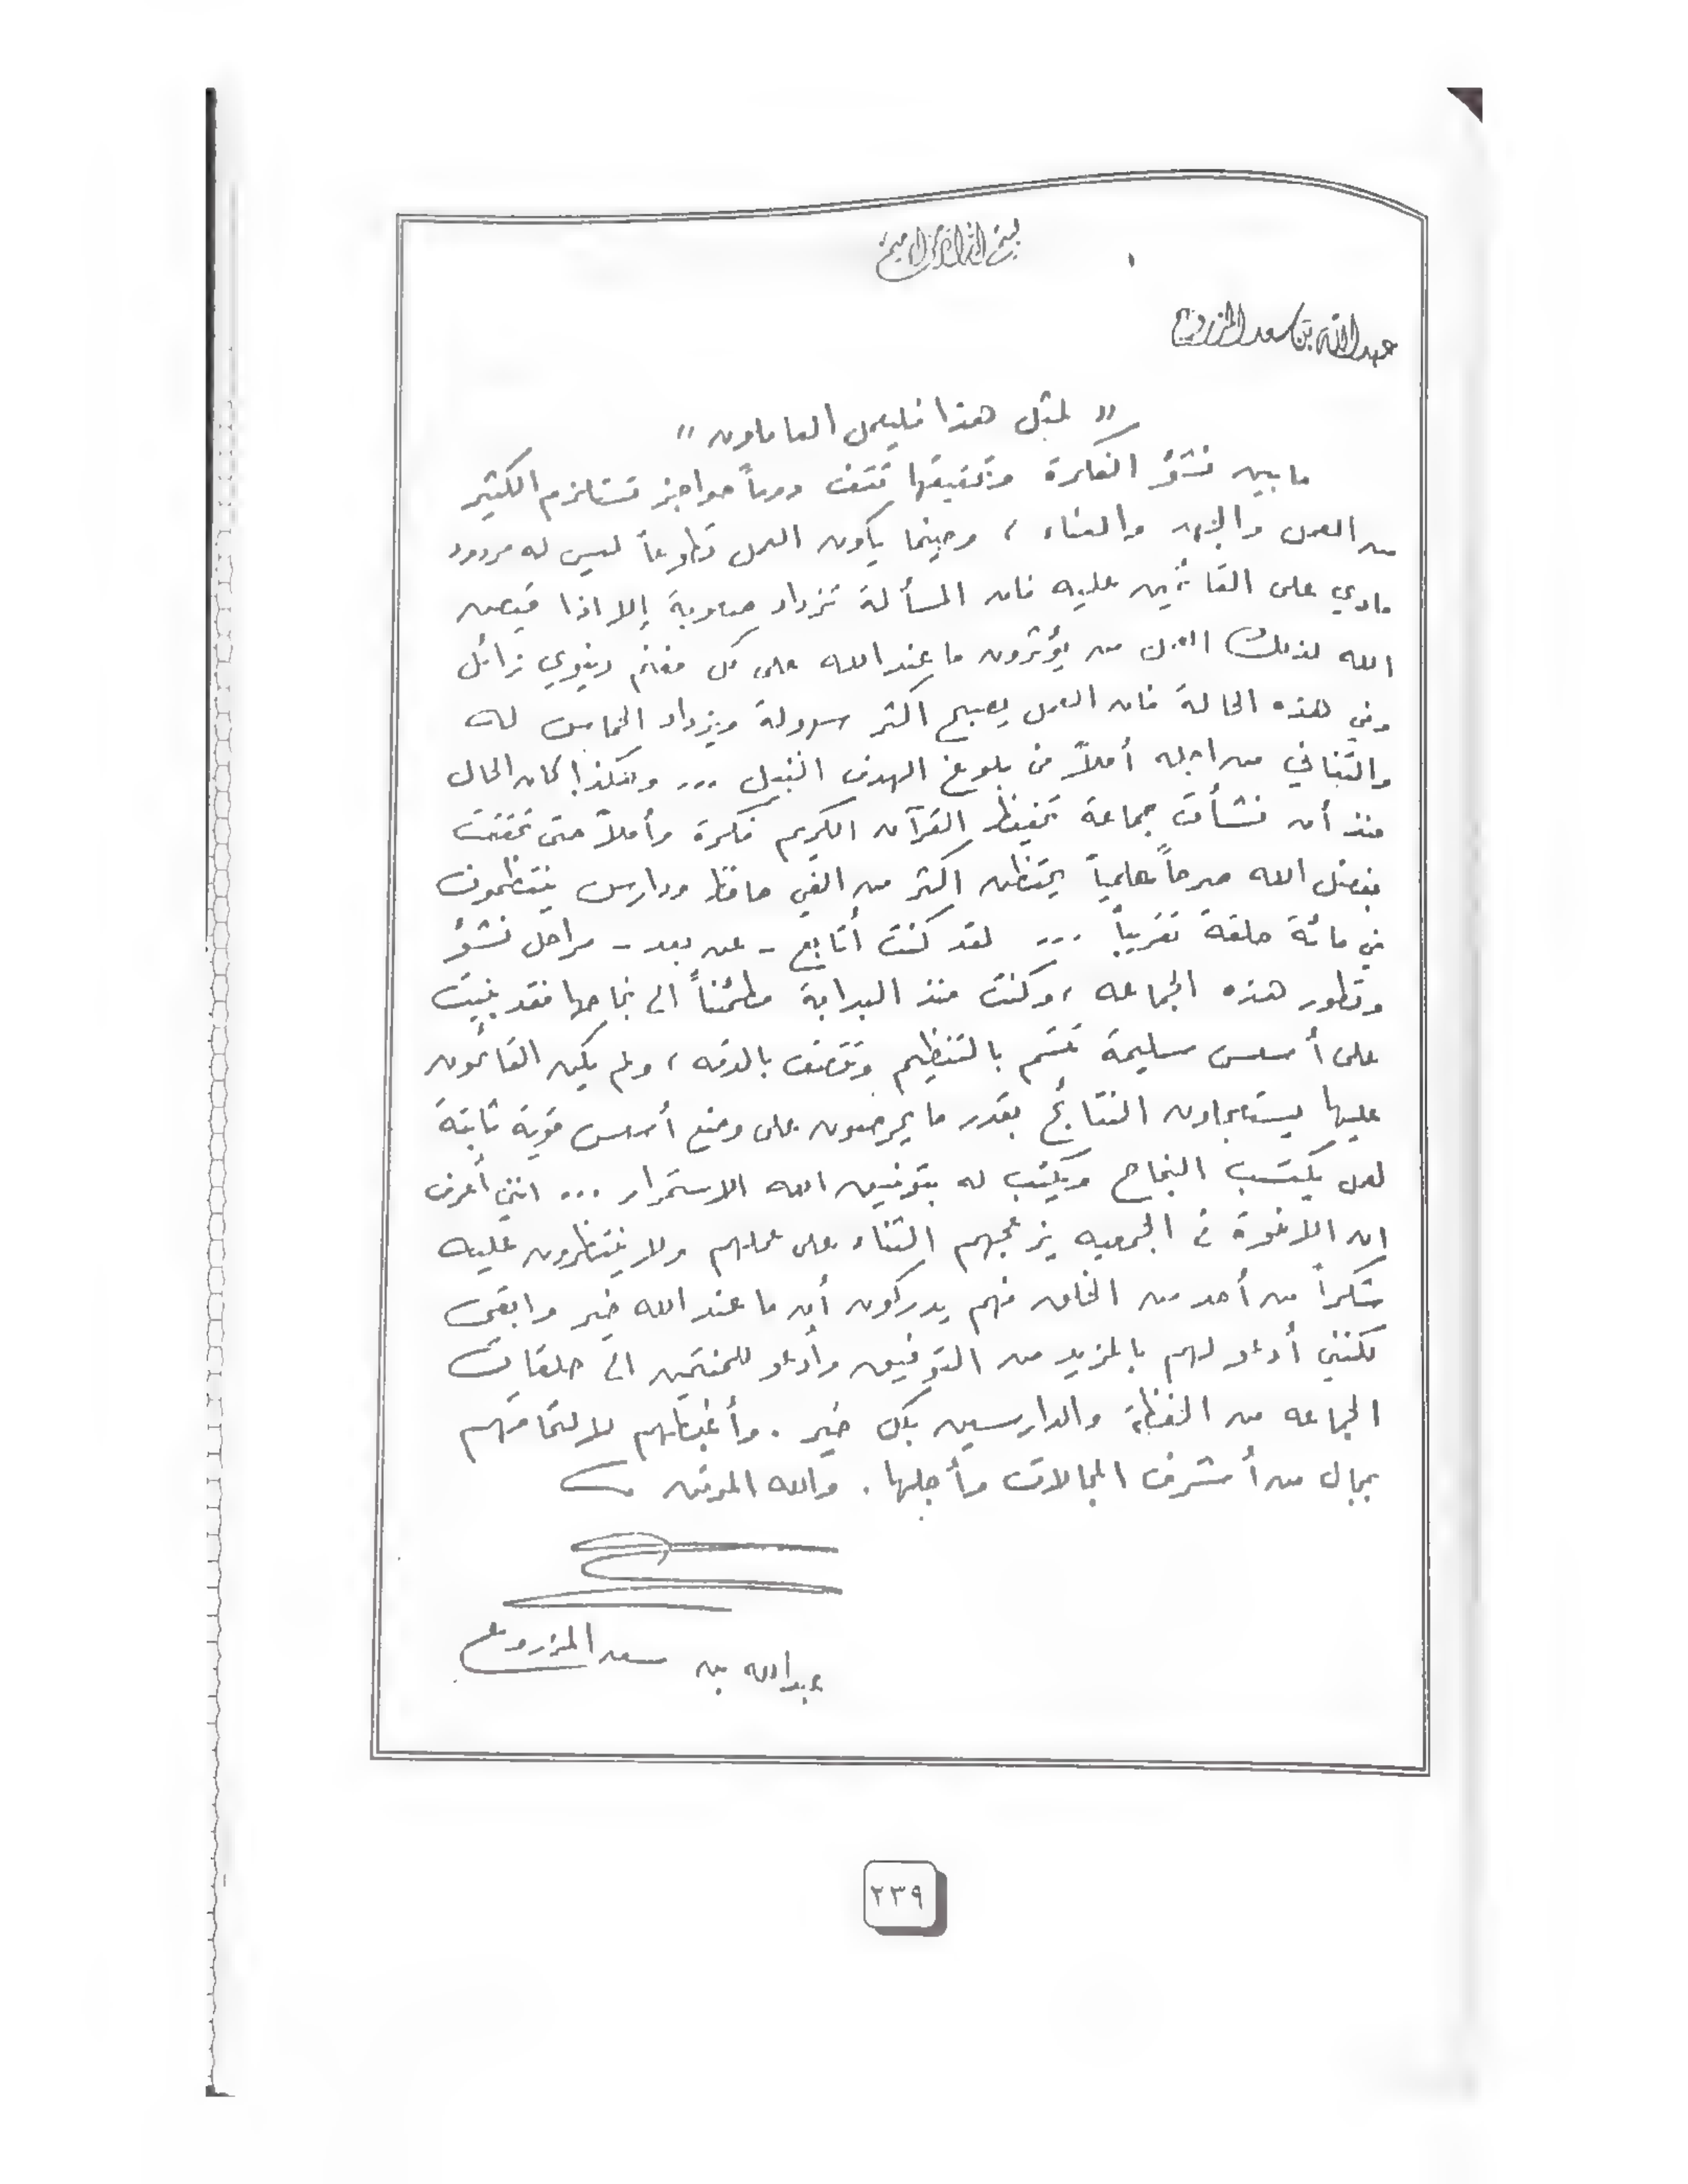 بسم الله الرحمن الرحيم
عبدالله بن سعد المزروع
" لمثل هذا فليعمل العاملون "
ما بين نشؤ الفكرة وتحقيقها تقف دوماً حواجز تستلزم الكثير
من العمل والجهد والعناء ، وحينما يكون العمل تطوعاً ليس له مردود
مادي على القائمين عليه فان المسألة تزداد صعوبة إلا اذا قيض
الله لذلك العمل من يؤثرون ما عند الله على كل مغنم دنيوي زائل
وفي هذه الحالة فان العمل يصبح اكثر سهولة ويزداد الحماس له
والتفاني من اجله أملاً في بلوغ الهدف النبيل ... وهكذا كان الحال
منذ أن نشأت جماعة تحفيظ القرآن الكريم فكرة وأملاً حتى تحققت
بفضل الله صرحاً علمياً يحتضن اكثر من الفي حافظ ودارس ينتظمون
في مائة حلقة تقريباً ... لقد كنت أتابع - عن بعد - مراحل نشؤ
وتطور هذه الجماعه ، وكنت منذ البداية مطمئناً الى نجاحها فقد بنيت
على أسس سليمة تتسم بالتنظيم وتتصف بالدقه ، ولم يكن القائمون
عليها يستعجلون النتائج بقدر ما يحرصون على وضع أسس قوية ثابتة
لعمل يكتسب النجاح ويكتب له بتوفيق الله الاستمرار ... انني أعرف
ان الاخوة في الجمعيه يزعجهم الثناء على عملهم ولا ينتظرون عليه
شكراً من أحد من الخلق فهم يدركون أن ما عند الله خير وابقى
لكنني أدعو لهم بالمزيد من التوفيق وأدعو للمنتمين الى حلقات
الجماعه من الحفظة والدارسين بكل خير . وأغبطهم لالتحاقهم
بمجال من أشرف المجالات وأجلها . والله الموفق
عبدالله بن سعد المزروع
٢٣٩